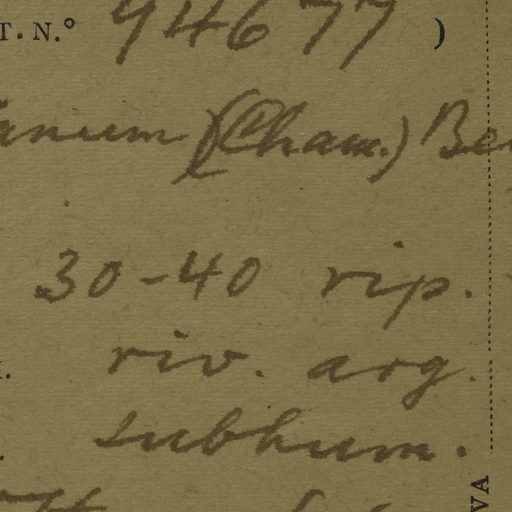 T. N.º 94677 )
anum (Cham.) Be
30-40 rip.
riv. arg.
subhum.
VA